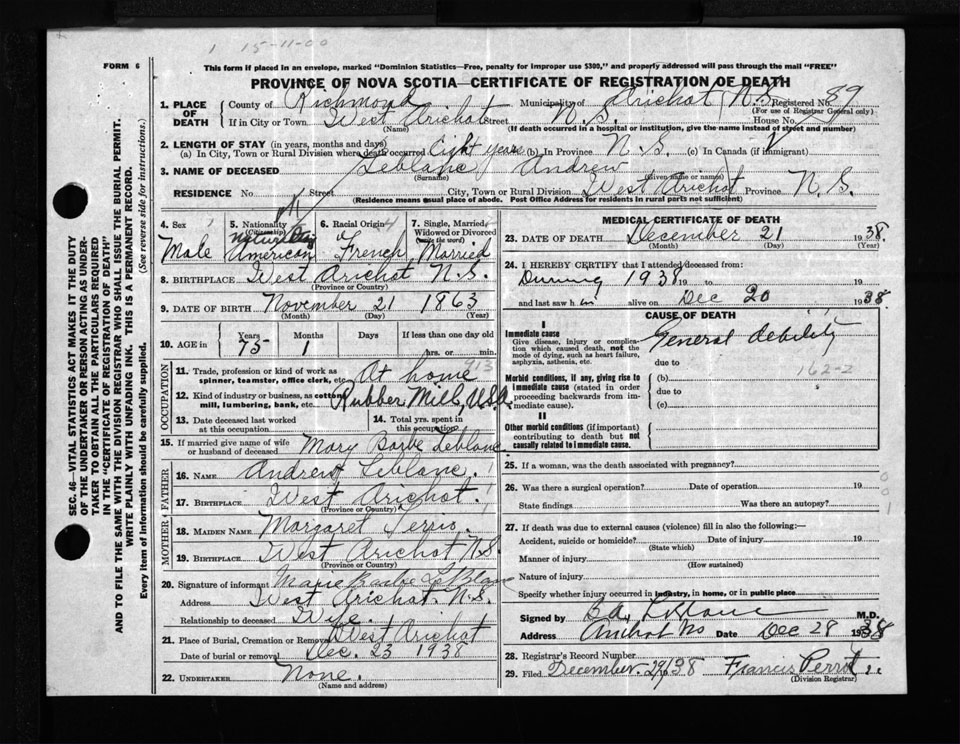 1 15-11-00
FORM 6
This form if placed in an envelope, marked "Dominion Statistics—Free, penalty for improper use $300," and properly addressed will pass through the mail "FREE"
PROVINCE OF NOVA SCOTIA—CERTIFICATE OF REGISTRATION OF DEATH
SEC. 46—VITAL STATISTICS ACT MAKES IT THE DUTY
OF THE UNDERTAKER OR PERSON ACTING AS UNDER-
TAKER TO OBTAIN ALL THE PARTICULARS REQUIRED
IN THE "CERTIFICATE OF REGISTRATION OF DEATH"
AND TO FILE THE SAME WITH THE DIVISION REGISTRAR WHO SHALL ISSUE THE BURIAL PERMIT.
WRITE PLAINLY WITH UNFADING INK. THIS IS A PERMANENT RECORD.
Every item of information should be carefully supplied. (See reverse side for instructions.)
1. PLACE OF DEATH County of Richmond Municipality of Arichat N.S. Registered No. 89
(For use of Registrar General only)
If in City or Town West Arichat Street N.S. House No.
(Name) (If death occurred in a hospital or institution, give the name instead of street and number)
2. LENGTH OF STAY (in years, months and days)
(a) In City, Town or Rural Division where death occurred Eight years (b) In Province N.S. (c) In Canada (if immigrant)
3. NAME OF DECEASED Leblanc Andrew
(Surname) (Given name or names)
RESIDENCE No Street City, Town or Rural Division West Arichat Province N.S.
(Residence means usual place of abode. Post Office Address for residents in rural parts not sufficient)
4. Sex Male
5. Nationality (Citizenship) American
6. Racial Origin French
7. Single, Married, Widowed or Divorced (write the word) Married
8. BIRTHPLACE West Arichat, N.S.
(Province or Country)
9. DATE OF BIRTH November 21 1863
(Month) (Day) (Year)
10. AGE in Years 75 Months 1 Days If less than one day old hrs. or min.
OCCUPATION
11. Trade, profession or kind of work as spinner, teamster, office clerk, etc. At home
12. Kind of industry or business, as cotton mill, lumbering, bank, etc. Rubber Mill, U.S.A
13. Date deceased last worked at this occupation
14. Total yrs. spent in this occupation
15. If married give name of wife or husband of deceased Mary Barbe Leblanc
FATHER
16. NAME Andrew Leblanc.
17. BIRTHPLACE West Arichat.
(Province or Country)
MOTHER
18. MAIDEN NAME Margaret Terrio.
19. BIRTHPLACE West Arichat N.S.
(Province or Country)
20. Signature of informant Marie Barbe LeBlanc
Address West Arichat. N.S.
Relationship to deceased Wife.
21. Place of Burial, Cremation or Removal West Arichat
Date of burial or removal Dec. 23 1938
22. UNDERTAKER None.
(Name and address)
MEDICAL CERTIFICATE OF DEATH
23. DATE OF DEATH December 21 1938.
(Month) (Day)
24. I HEREBY CERTIFY that I attended deceased from:
During 1938 19 to 19
and last saw h im alive on Dec 20 1938
CAUSE OF DEATH
I
Immediate cause General debility
Give disease, injury or complication which caused death, not the mode of dying, such as heart failure, asphyxia, asthenia, etc.
due to
162-2
Morbid conditions, if any, giving rise to immediate cause (stated in order proceeding backwards from immediate cause).
(b)
due to
(c)
II
Other morbid conditions (if important) contributing to death but not causally related to immediate cause.
25. If a woman, was the death associated with pregnancy?
26. Was there a surgical operation? Date of operation 19
State findings Was there an autopsy?
27. If death was due to external causes (violence) fill in also the following:—
Accident, suicide or homicide? Date of injury 19
(State which)
Manner of injury
(How sustained)
Nature of injury
Specify whether injury occurred in industry, in home, or in public place
Signed by M.D.
Address Arichat NS Date Dec 28 1938
28. Registrar's Record Number
29. Filed December 29/38 Francis
(Division Registrar)